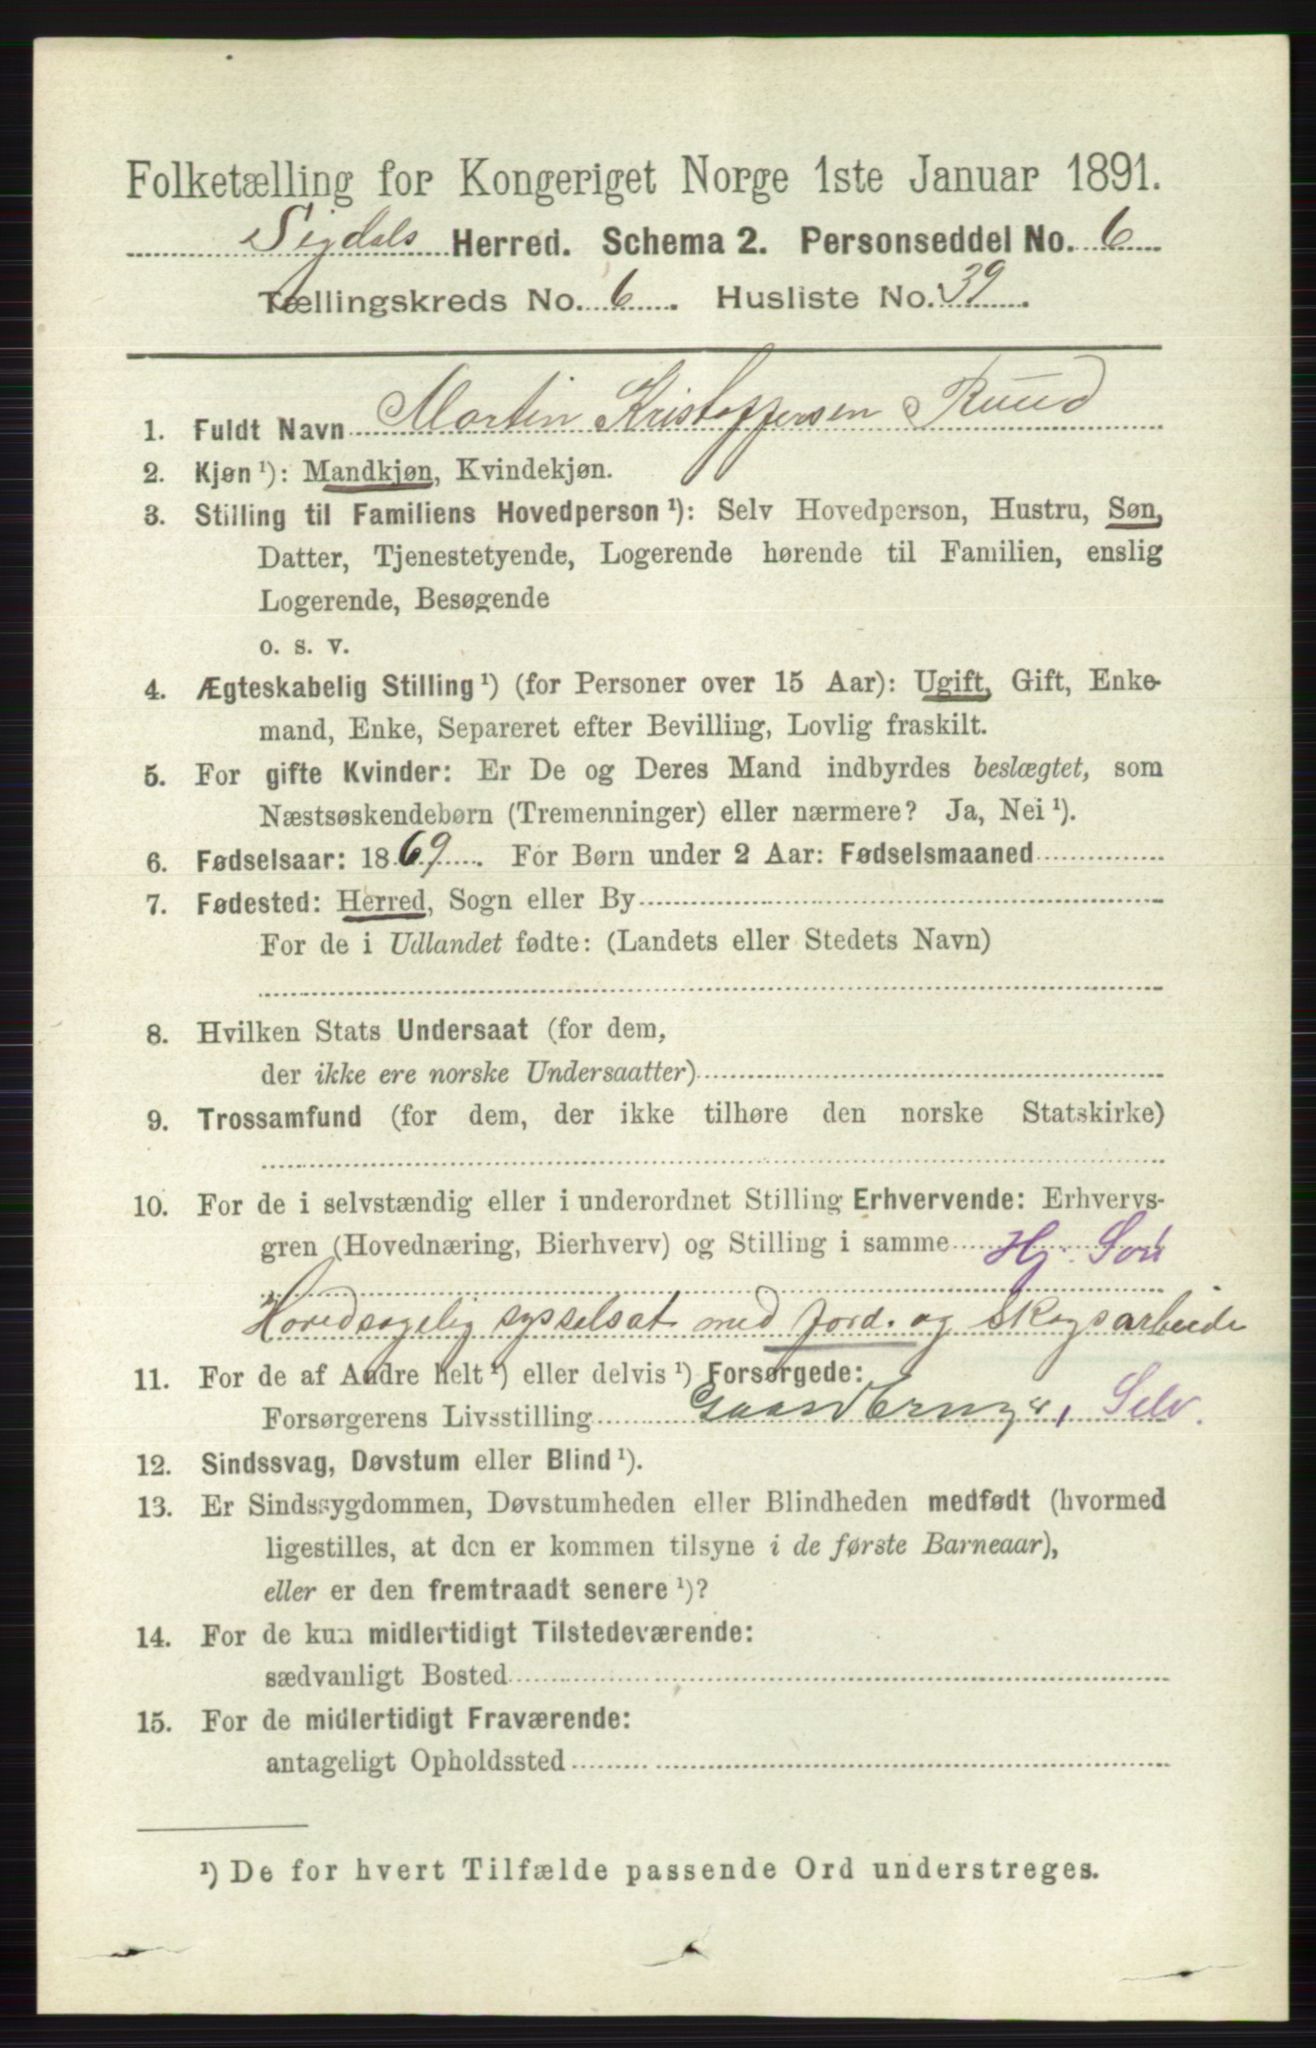 Folketælling for Kongeriget Norge 1ste Januar 1891.
Sigdals Herred. Schema 2. Personseddel No. 6
Tællingskreds No. 6. Husliste No. 39.
1. Fuldt Navn Martin Kristoffersen Ruud
2. Kjøn ¹): Mandkjøn, Kvindekjøn.
3. Stilling til Familiens Hovedperson ¹): Selv Hovedperson, Hustru, Søn,
Datter, Tjenestetyende, Logerende hørende til Familien, enslig
Logerende, Besøgende
o. s. v.
4. Ægteskabelig Stilling ¹) (for Personer over 15 Aar): Ugift, Gift, Enke-
mand, Enke, Separeret efter Bevilling, Lovlig fraskilt.
5. For gifte Kvinder: Er De og Deres Mand indbyrdes beslægtet, som
Næstsøskendebørn (Tremenninger) eller nærmere? Ja, Nei ¹).
6. Fødselsaar: 1869. For Børn under 2 Aar: Fødselsmaaned
7. Fødested: Herred, Sogn eller By
For de i Udlandet fødte: (Landets eller Stedets Navn)
8. Hvilken Stats Undersaat (for dem,
der ikke ere norske Undersaatter)
9. Trossamfund (for dem, der ikke tilhøre den norske Statskirke)
10. For de i selvstændig eller i underordnet Stilling Erhvervende: Erhvervs-
gren (Hovednæring, Bierhverv) og Stilling i samme Hj. Søn
Hovedsagelig sysselsat med jord. og Skogsarbeide
11. For de af Andre helt ¹) eller delvis ¹) Forsørgede:
Forsørgerens Livsstilling Gaardbruger, Selv.
12. Sindssvag, Døvstum eller Blind ¹).
13. Er Sindssygdommen, Døvstumheden eller Blindheden medfødt (hvormed
ligestilles, at den er kommen tilsyne i de første Barneaar),
eller er den fremtraadt senere ¹)?
14. For de kun midlertidigt Tilstedeværende:
sædvanligt Bosted
15. For de midlertidigt Fraværende:
antageligt Opholdssted
¹) De for hvert Tilfælde passende Ord understreges.